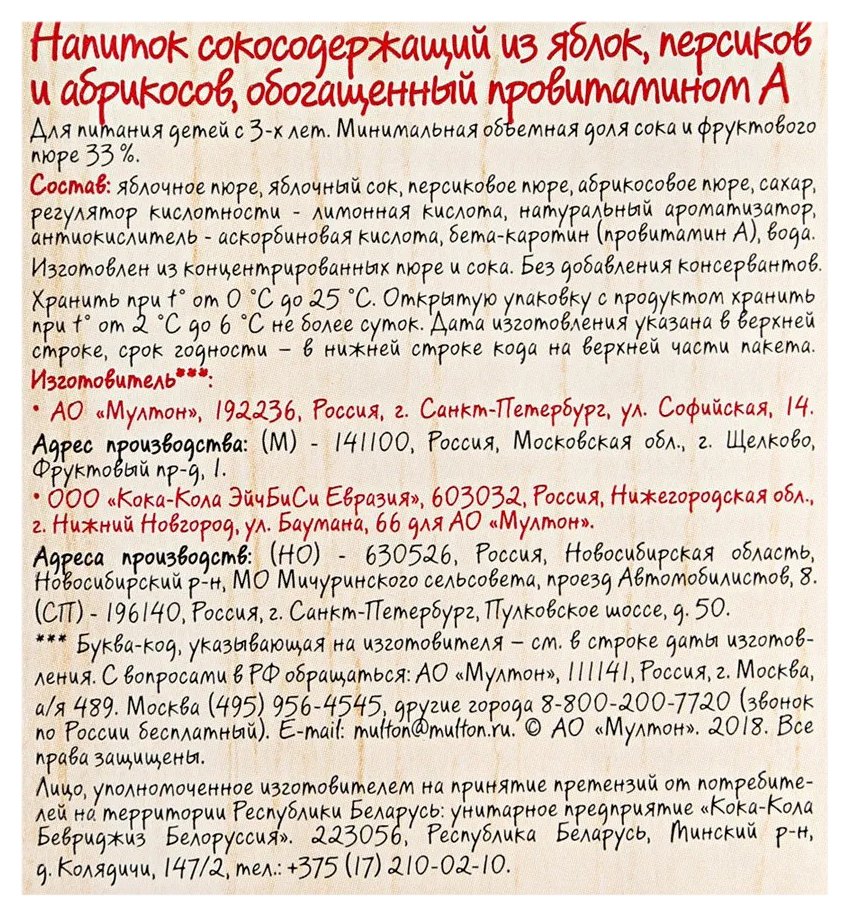 Напиток сокосодержащий из яблок, персиков
и абрикосов, обогащенный провитамином А
Для питания детей с 3-х лет. Минимальная объемная доля сока и фруктового
пюре 33 %.
Состав: яблочное пюре, яблочный сок, персиковое пюре, абрикосовое пюре, сахар,
регулятор кислотности - лимонная кислота, натуральный ароматизатор,
антиокислитель - аскорбиновая кислота, бета-каротин (провитамин А), вода.
Изготовлен из концентрированных пюре и сока. Без добавления консервантов.
Хранить при t° от 0 °С до 25 °С. Открытую упаковку с продуктом хранить
при t° от 2 °С до 6 °С не более суток. Дата изготовления указана в верхней
строке, срок годности – в нижней строке кода на верхней части пакета.
Изготовитель***:
• АО «Мултон», 192236, Россия, г. Санкт-Петербург, ул. Софийская, 14.
Адрес производства: (М) - 141100, Россия, Московская обл., г. Щелково,
Фруктовый пр-д, 1.
• ООО «Кока-Кола ЭйчБиСи Евразия», 603032, Россия, Нижегородская обл.,
г. Нижний Новгород, ул. Баумана, 66 для АО «Мултон».
Адреса производств: (НО) - 630526, Россия, Новосибирская область,
Новосибирский р-н, МО Мичуринского сельсовета, проезд Автомобилистов, 8.
(СП) - 196140, Россия, г. Санкт-Петербург, Пулковское шоссе, д. 50.
*** Буква-код, указывающая на изготовителя – см. в строке даты изготов-
ления. С вопросами в РФ обращаться: АО «Мултон», 111141, Россия, г. Москва,
а/я 489. Москва (495) 956-4545, другие города 8-800-200-7720 (звонок
по России бесплатный). E-mail: multon@multon.ru. © АО «Мултон». 2018. Все
права защищены.
Лицо, уполномоченное изготовителем на принятие претензий от потребите-
лей на территории Республики Беларусь: унитарное предприятие «Кока-Кола
Бевриджиз Белоруссия». 223056, Республика Беларусь, Минский р-н,
д. Колядичи, 147/2, тел.: +375 (17) 210-02-10.